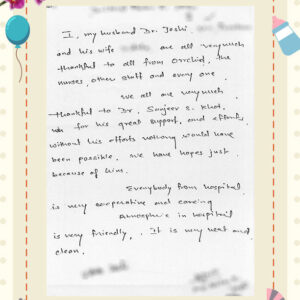 I, my husband Dr. Joshi
and his wife are all very much
thankful to all from Orrchid, the
nurses, other staff and every one.
We all are very much
thankful to Dr. Sanjeev S. Khot,
for his great support, and efforts,
without his efforts nothing would have
been possible. We have hopes just
because of him.
Everybody from hospital
is very co-operative and caring
Atmospheric in hospital
is very friendly. It is very neat and
clean.